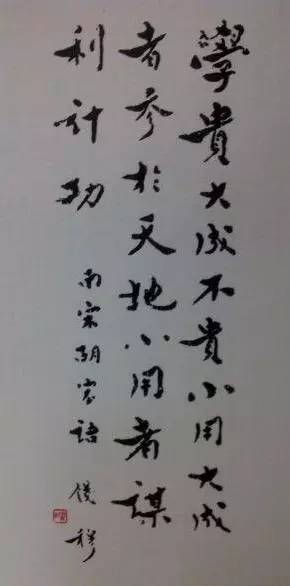 學貴大成不貴小用大成
者參於天地小用者謀
利計功
南宋胡宏語 錢穆